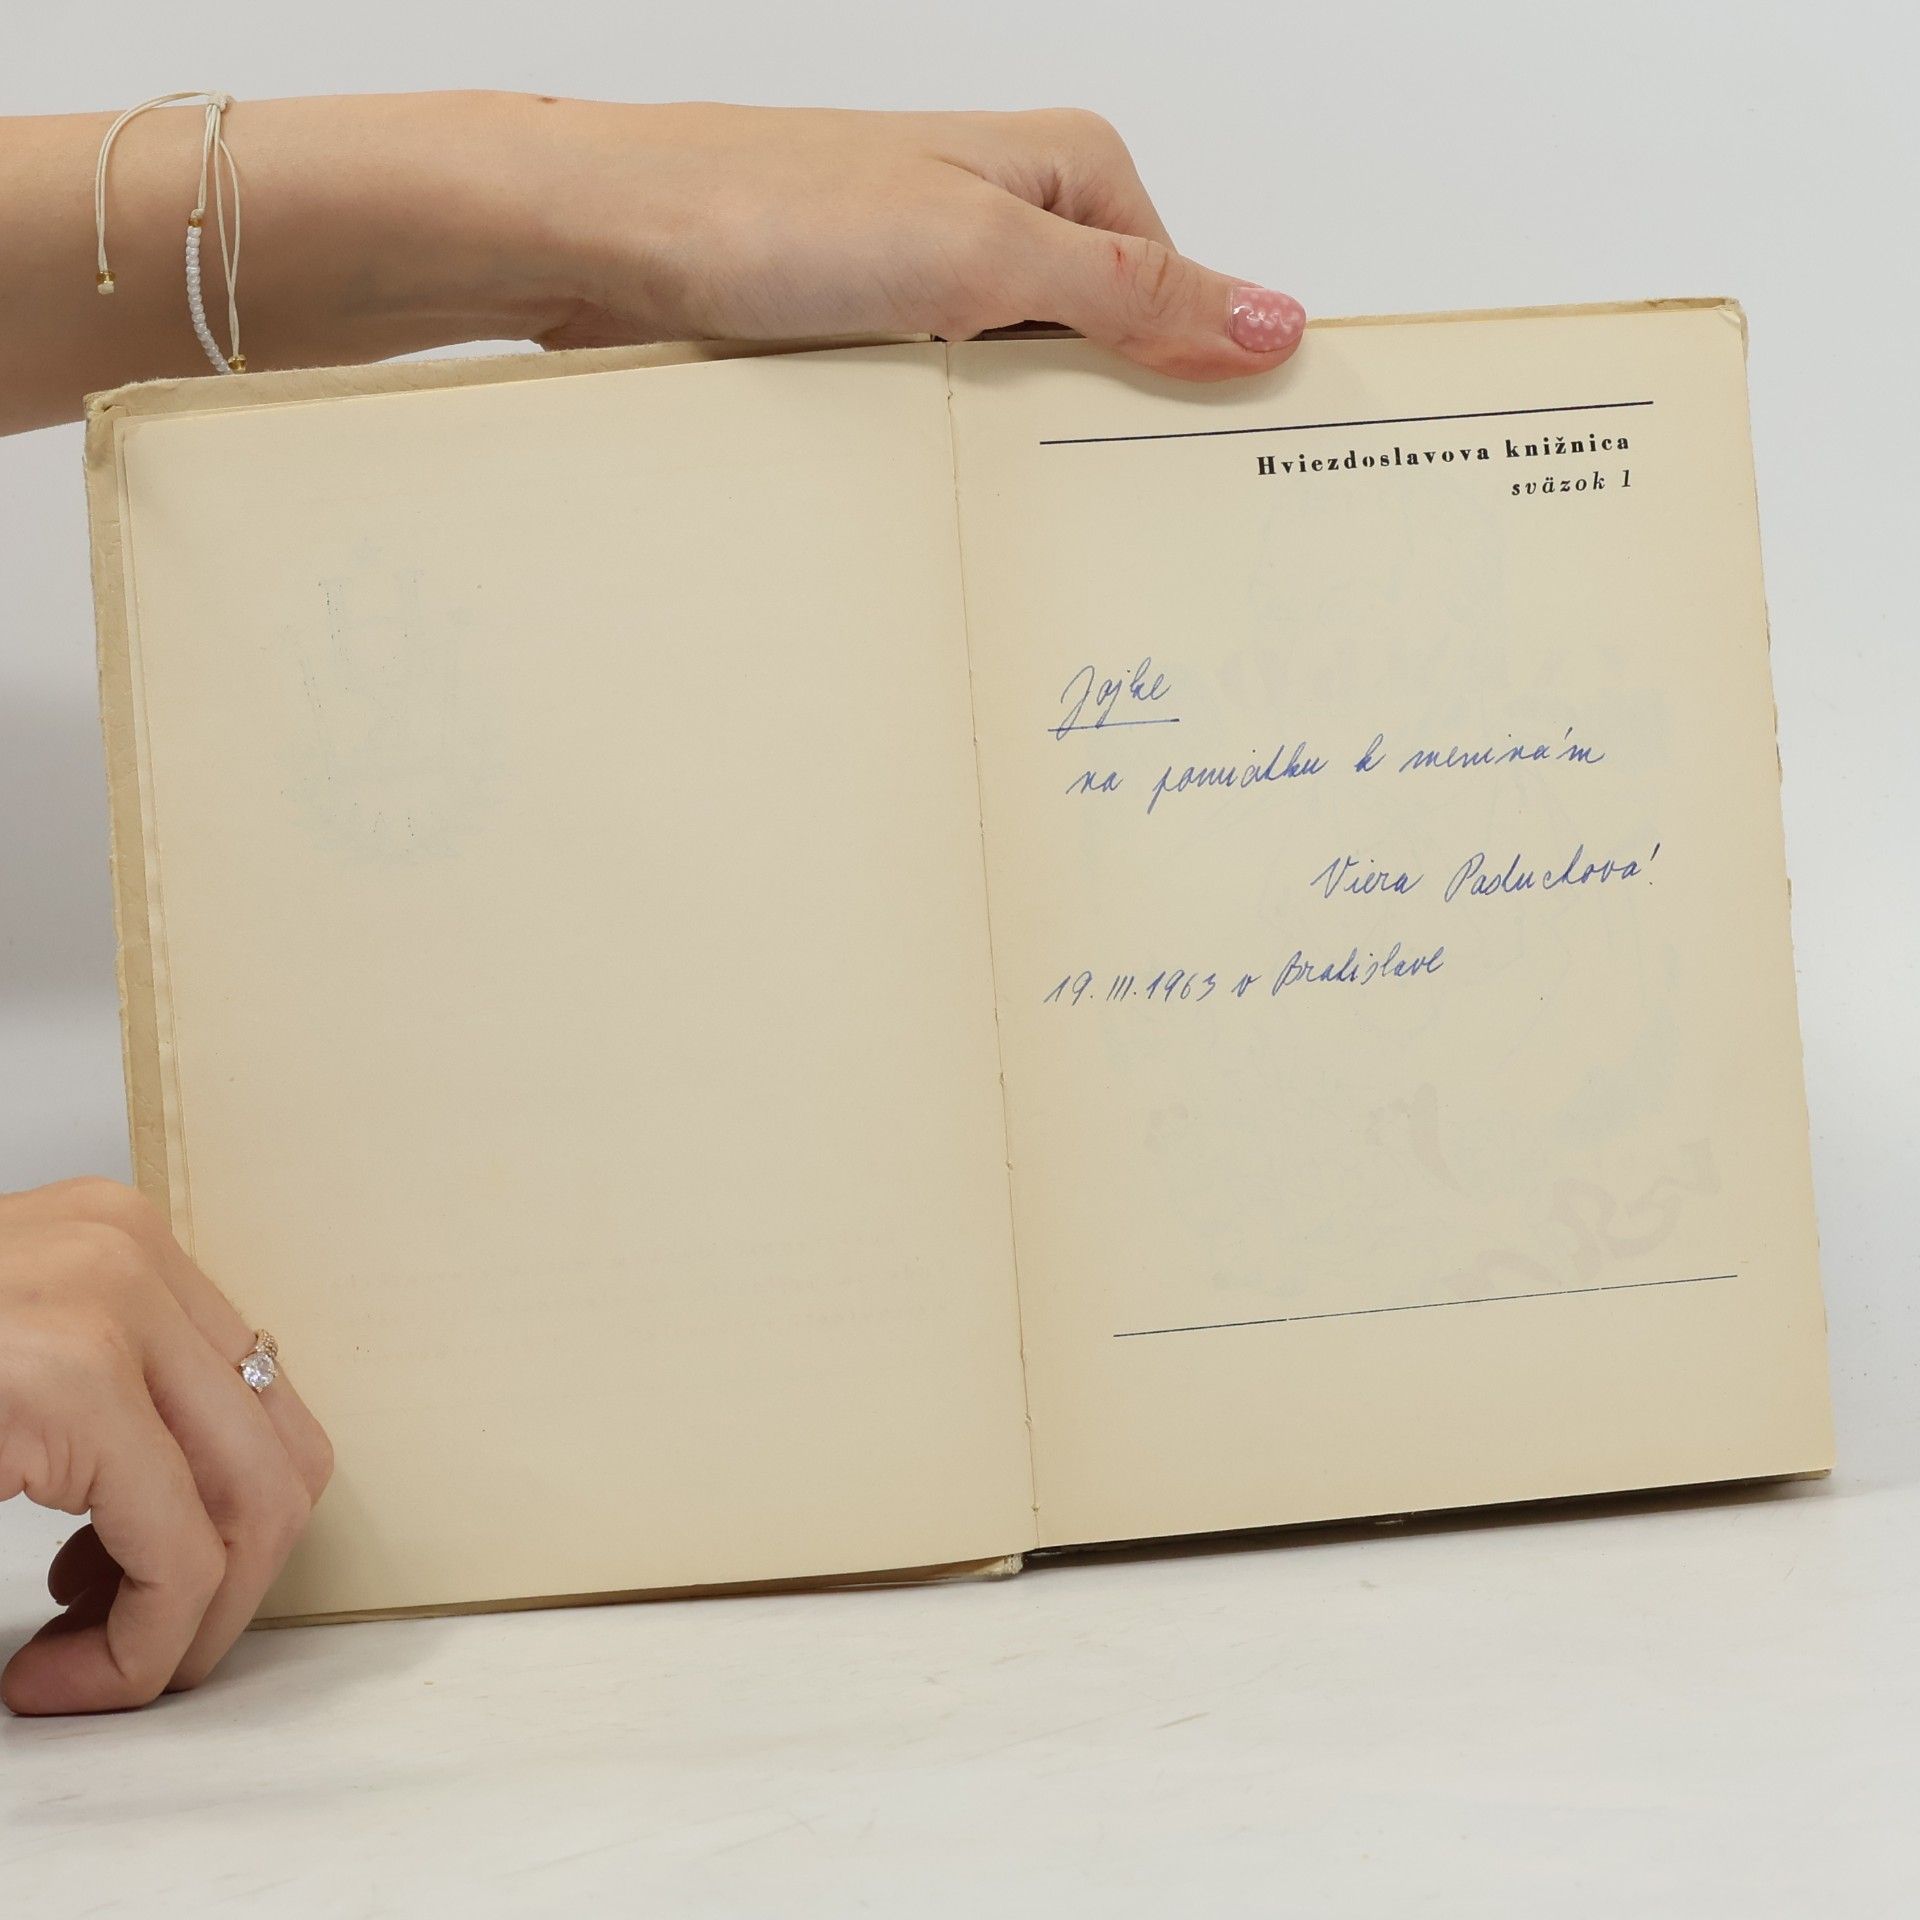 Hviezdoslavova knižnica
sväzok 1
Jojke
na pamiatku k meninám
Viera Paduchová!
19. III. 1963 v Bratislave